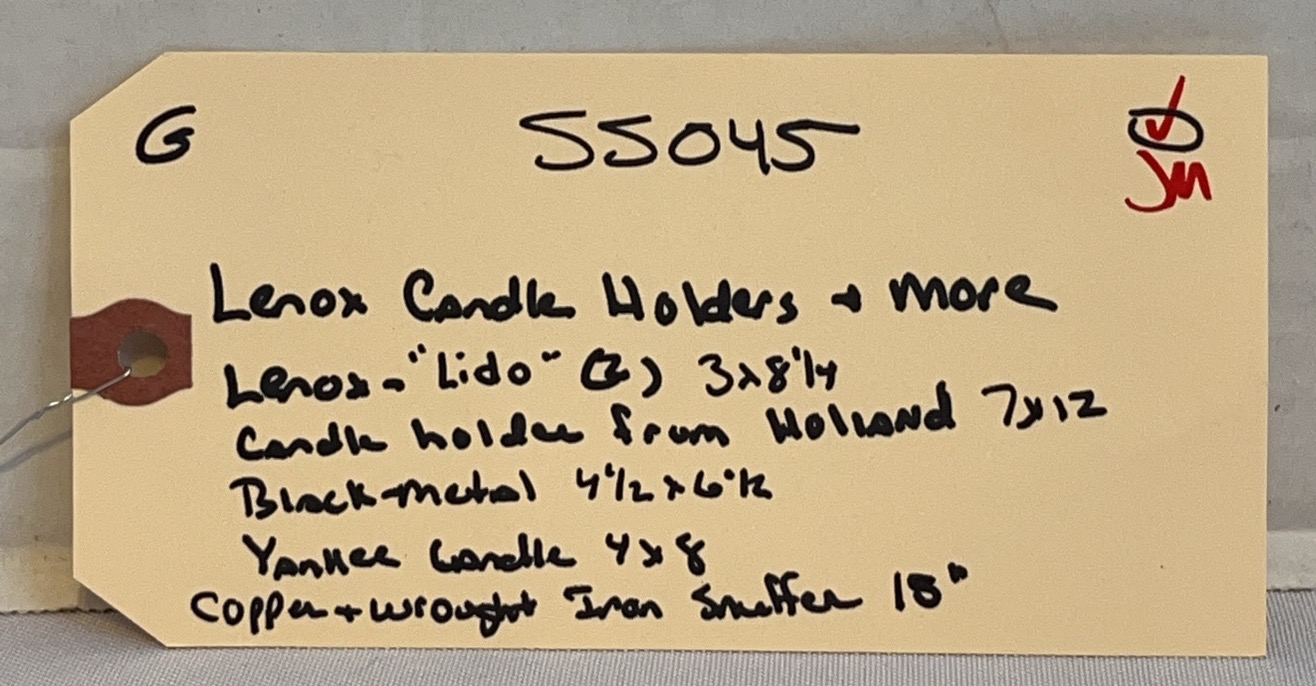 G 55045
JM
Lenox Candle Holders + More
Lenox - "Lido" (2) 3x8 1/4
Candle holder from Holland 7x12
Black metal 4 1/2 x 6 1/2
Yankee Candle 4x8
Copper + Wrought Iron Snuffer 18"